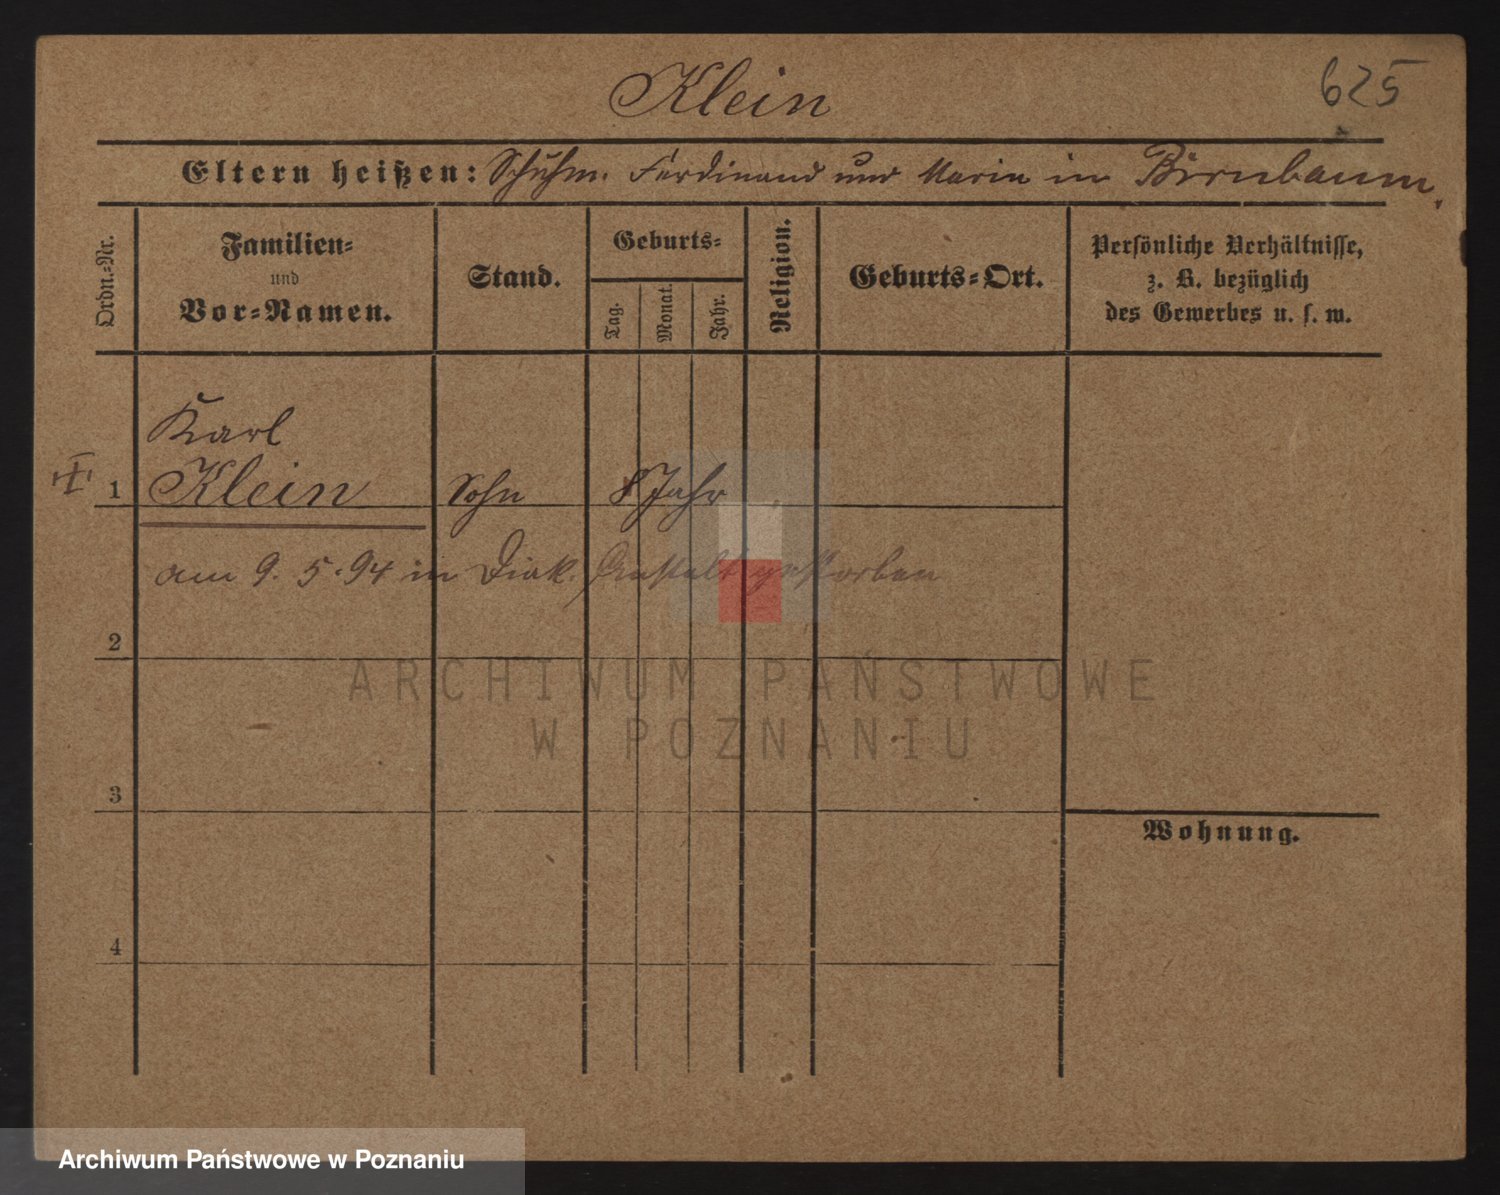 Klein
625
Eltern heißen: Schuhm. Ferdinand und Marie in Birnbaum.
Ordn.=Nr.
Familien=
und
Vor=Namen.
Stand.
Geburts=
Tag.
Monat.
Jahr.
Religion.
Geburts=Ort.
Persönliche Verhältnisse,
z. B. bezüglich
des Gewerbes u. s. w.
Karl
1 Klein Sohn 8 Jahr
am 9. 5. 94 in Diak. Anstalt gestorben
2
ARCHIWUM PAŃSTWOWE
W POZNANIU
3
Wohnung.
4
Archiwum Państwowe w Poznaniu